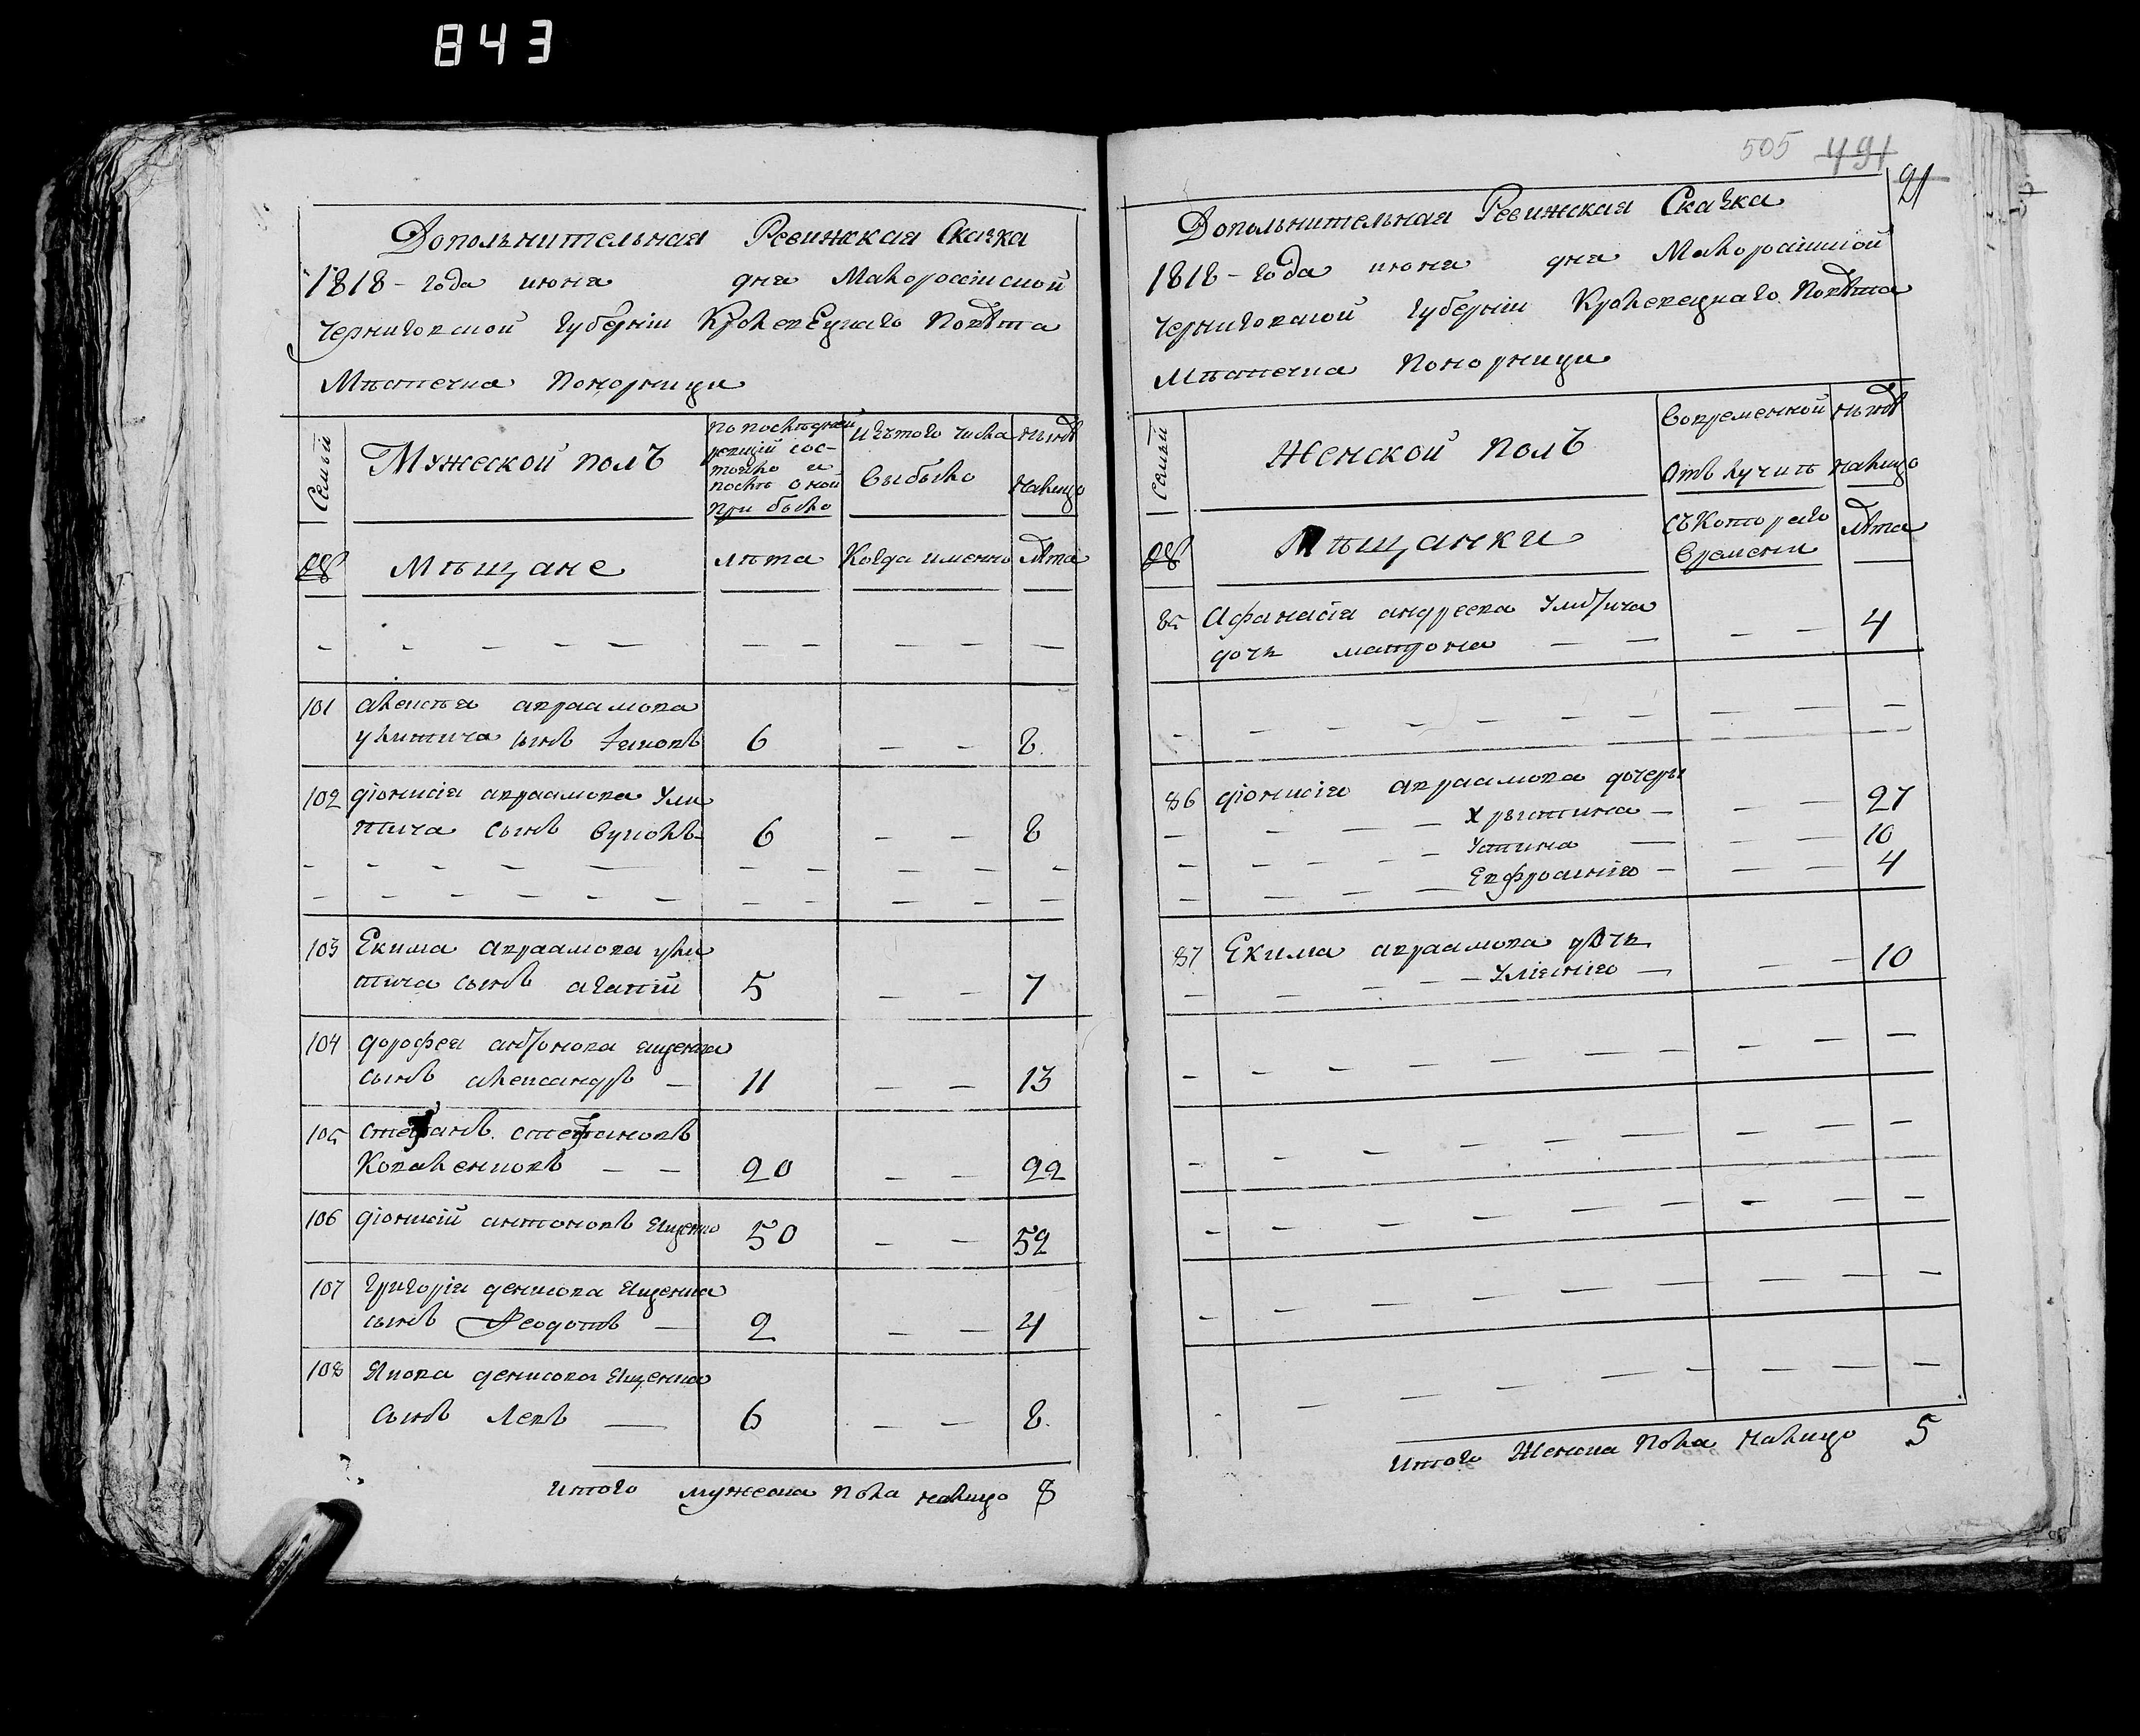 843
Дополнительная Ревижская Сказка
1818 – года июня дня Малоросійской
Черниговской Губерніи Кролевецкаго Повѣта
Мѣстечка Понорници
Семьи
Мужеской полъ
По послѣдней
ревизіи сос-
тояло и
послѣ оной
прибыло
Изъ того числа
выбыло
нынѣ
налицо
№
Мѣщане
лѣта
Когда именно
лѣта
101 Алексѣя авраамова
улитича сынъ Яковъ 6 – – 8.
102 діонисія авраамова Ули
тича сынъ Вуколъ 6 – – 8
103 Екима авраамова ули
тича сынъ агапій 5 – – 7
104 дорофея антонова ященка
сынъ александръ – 11 – – 13
105 стефанъ стефановъ
Коваленковъ – – 20 – – 22
106 діонисій антоновъ Ященко 50 – – 52
107 Григорія денисова Ященка
сынъ Феодотъ – 2 – – 4
108 Якова денисова Ященка
сынъ Левъ – 6 – – 8.
итого мужеска пола налицо 8
505 491
91
Дополнительная Ревижская Сказка
1818 – года июня дня Малоросійской
Черниговской Губерніи Кролевецкаго Повѣта
Мѣстечка Понорници
Семьи
Женской полъ
Вовременной
отлучкѣ
нынѣ
налицо
№
Мѣщанки
съ Котораго
времени
лѣта
85 Афанасія андреева Улитича
дочь матрона – – – – 4
86 діонисія авраамова дочери
Христина – – – 27
Устина – – – 10
Евфросинія – – – 4
87 Екима авраамова дочь
Уліянія – – – 10
Итого Женска пола налицо 5